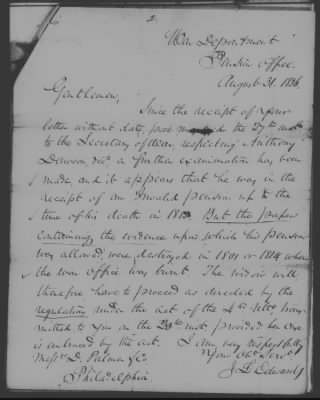 2
War Department
Pension Office
August 31. 1836.
Gentlemen,
Since the receipt of your
letter without date, post marked the 27th inst
to the Secretary of War, respecting Anthony
Dawson, decd a further examination has been
made, and it appears that he was in the
receipt of an Invalid pension up to the
time of his death in But the papers
containing the evidence upon which his pension
was allowed, were destroyed in 1801 or 1814 when
the war office was burnt. The widow will
therefore have to proceed as directed by the
regulations under the act of the 4th trans-
mitted to you on the 20th inst, provided her case
is embraced by the act. I am, very respectfully
Your Obt Servt
Messrs D. Palmer & Co
J. L. Edwards
Philadelphia